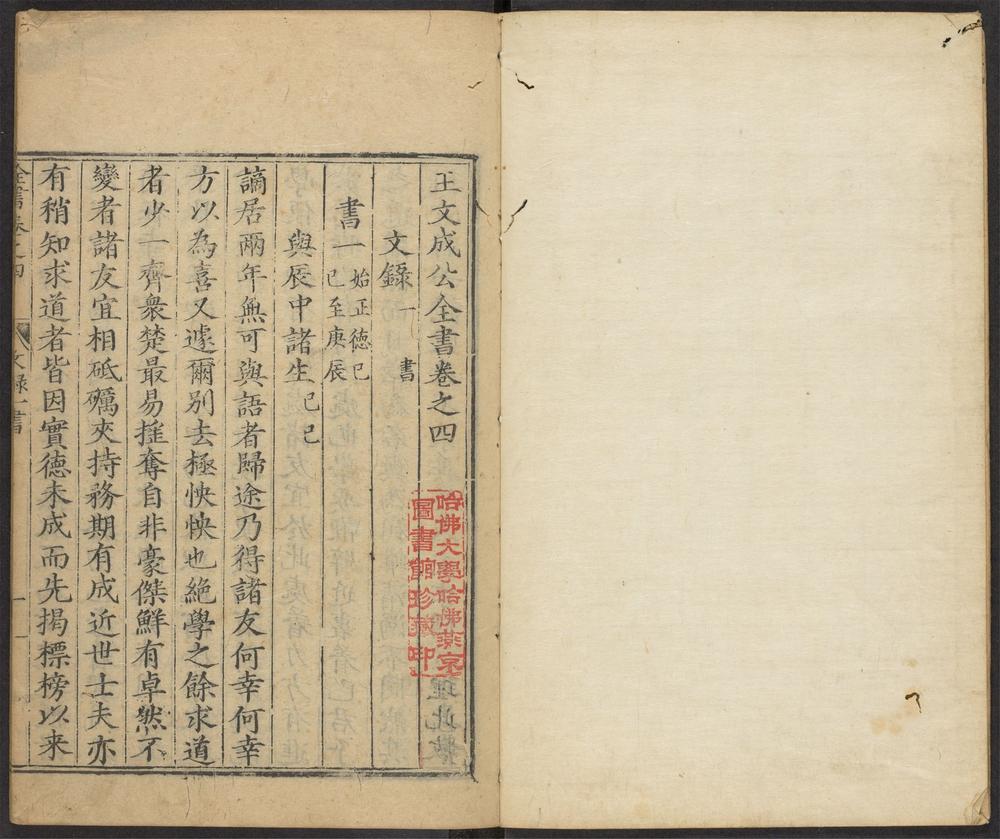 王文成公全書卷之四
文錄一 書
書一 始正德己
巳至庚辰
與辰中諸生 己巳
謫居兩年無可與語者歸途乃得諸友何幸何幸
方以為喜又遽爾別去極怏怏也絕學之餘求道
者少一齊衆楚最易搖奪自非豪傑鮮有卓然不
變者諸友宜相砥礪夾持務期有成近世士夫亦
有稍知求道者皆因實德未成而先揭標榜以来
全書卷之四 文錄一書 一
哈佛大學哈佛燕京
圖書館珍藏印